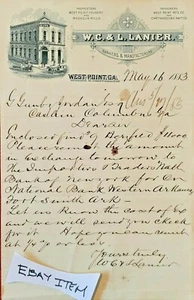 W.C. & L. LANIER.
BANKERS & MANUFACTURERS
WEST POINT, GA. May 16 1883
G Gunby Jordan
Cashier Columbus Ga
Dear Sir
Enclosed find
Please remit us amount
in Exchange tomorrow to
The Importers & Traders Natl
Bank New York for Cr
National Bank Western Arkansas
Fort Smith Ark
Let us know the cost of Ex
and we will send you check
for it Hope you can
at or less
Yours truly
W C & L Lanier
EBAY ITEM